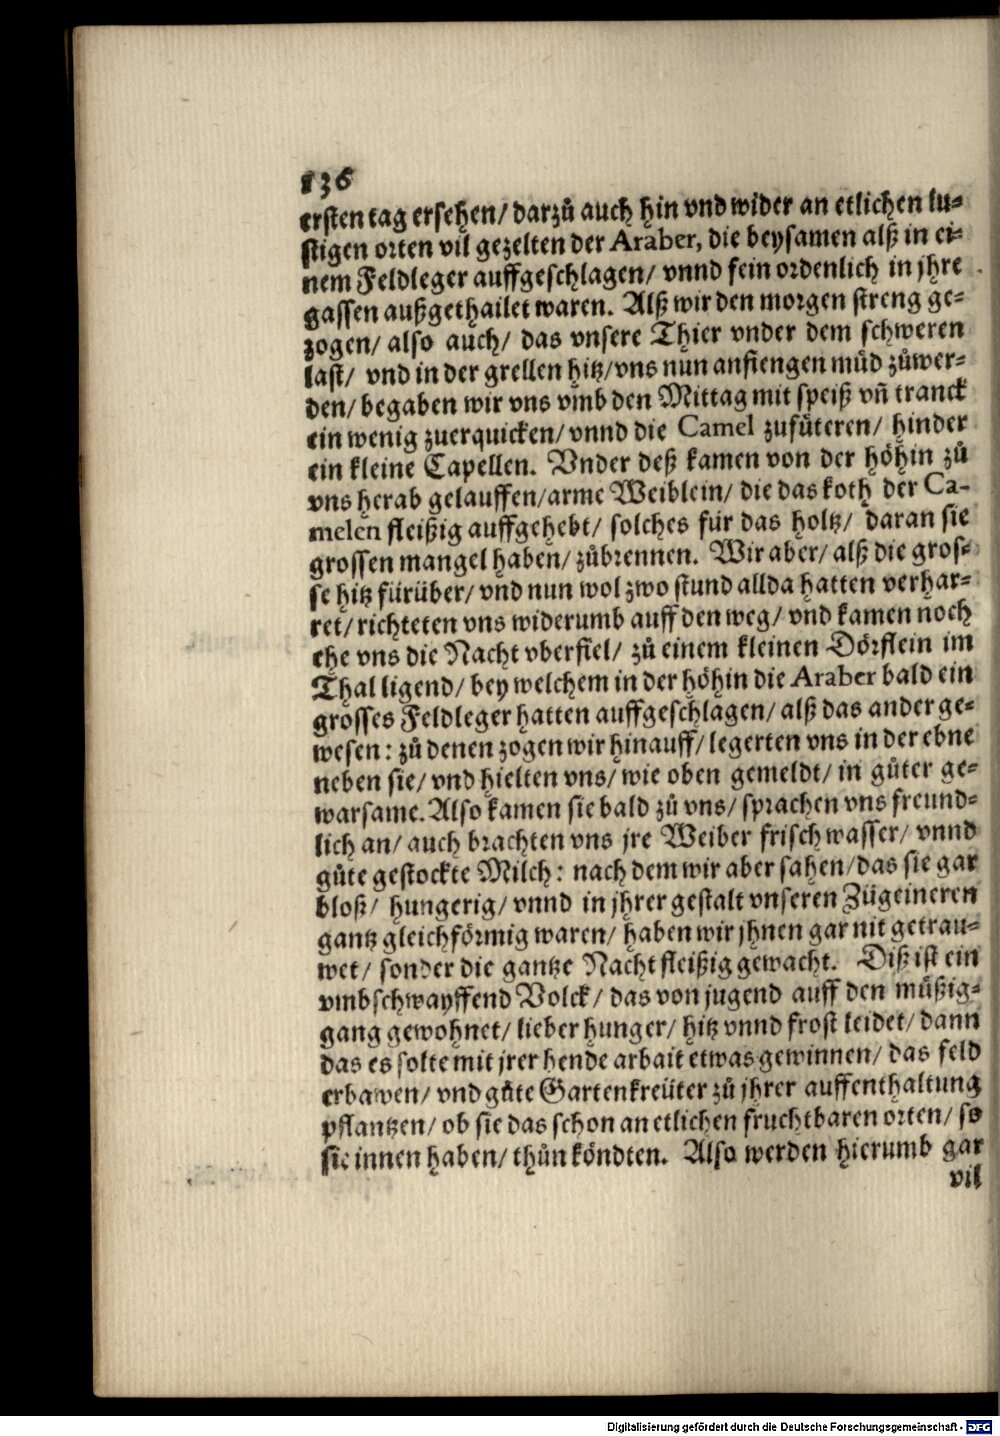 136
ersten tag ersehen/ darzů auch hin vnd wider an etlichen lu-
stigen orten vil gezelten der Araber, die beysamen alß in ei-
nem Feldleger auffgeschlagen/ vnnd fein ordenlich in jhre
gassen außgethailet waren. Alß wir den morgen streng ge-
zogen/ also auch/ das vnsere Thier vnder dem schweren
last/ vnd in der grellen hitz/ vns nun anfiengen müd zůwer-
den/ begaben wir vns vmb den Mittag mit speiß vñ tranck
ein wenig zuerquicken/ vnnd die Camel zufüteren/ hinder
ein kleine Capellen. Vnder deß kamen von der höhin zů
vns herab gelauffen/ arme Weiblein/ die das koth der Ca-
melen fleißig auffgehebt/ solches für das holtz/ daran sie
grossen mangel haben/ zůbrennen. Wir aber/ alß die gros-
se hitz fürüber/ vnd nun wol zwo stund allda hatten verhar-
ret/ richteten vns widerumb auff den weg/ vnd kamen noch
ehe vns die Nacht vberfiel/ zů einem kleinen Dörflein im
Thal ligend/ bey welchem in der höhin die Araber bald ein
grösses Feldleger hatten auffgeschlagen/ alß das ander ge-
wesen: zů denen zogen wir hinauff/ legerten vns in der ebne
neben sie/ vnd hielten vns/ wie oben gemeldt/ in gůter ge-
warsame. Also kamen sie bald zů vns/ sprachen vns freund-
lich an/ auch brachten vns jre Weiber frisch wasser/ vnnd
gůte gestockte Milch: nach dem wir aber sahen/ das sie gar
bloß/ hungerig/ vnnd in jhrer gestalt vnseren Zügeineren
gantz gleichförmig waren/ haben wir jhnen gar nit getrau-
wet/ sonder die gantze Nacht fleißig gewacht. Diß ist ein
vmbschwayffend Volck/ das von jugend auff den müßig-
gang gewohnet/ lieber hunger/ hitz vnnd frost leidet/ dann
das es solte mit jrer hende arbait etwas gewinnen/ das feld
erbawen/ vnd gůte Gartenkreüter zů jhrer auffenthaltung
pflantzen/ ob sie das schon an etlichen fruchtbaren orten/ so
sie innen haben/ thůn köndten. Also werden hierumb gar
vil
Digitalisierung gefördert durch die Deutsche Forschungsgemeinschaft - DFG